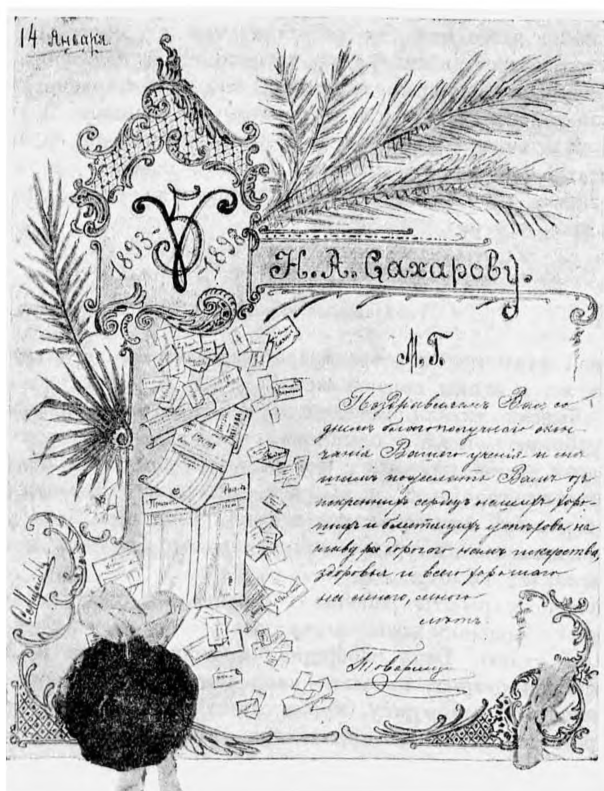 14 Января.
1893-1898
Н. А. Сахарову.
М. Г.
Поздравляемъ Васъ съ
днемъ благополучнаго окон-
чанія Вашего ученія и спѣ-
шимъ пожелать Вамъ отъ
искреннихъ сердецъ нашихъ хоро-
шихъ и блестящихъ успѣховъ на
дорогого намъ искусства,
здоровья и всего хорошаго
на много, много
лѣтъ.
Товарищи